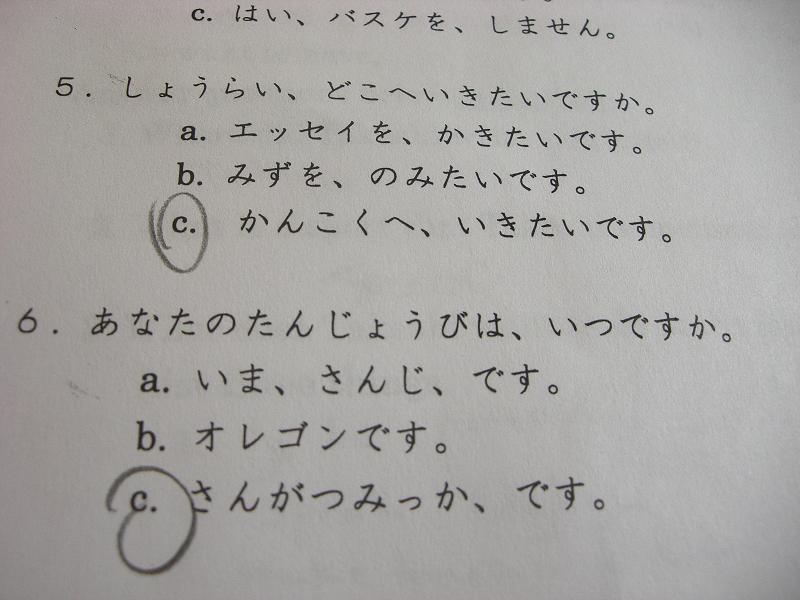 c. はい、バスケを、しません。
5. しょうらい、どこへいきたいですか。
a. エッセイを、かきたいです。
b. みずを、のみたいです。
c. かんこくへ、いきたいです。
6. あなたのたんじょうびは、いつですか。
a. いま、さんじ、です。
b. オレゴンです。
c. さんがつみっか、です。